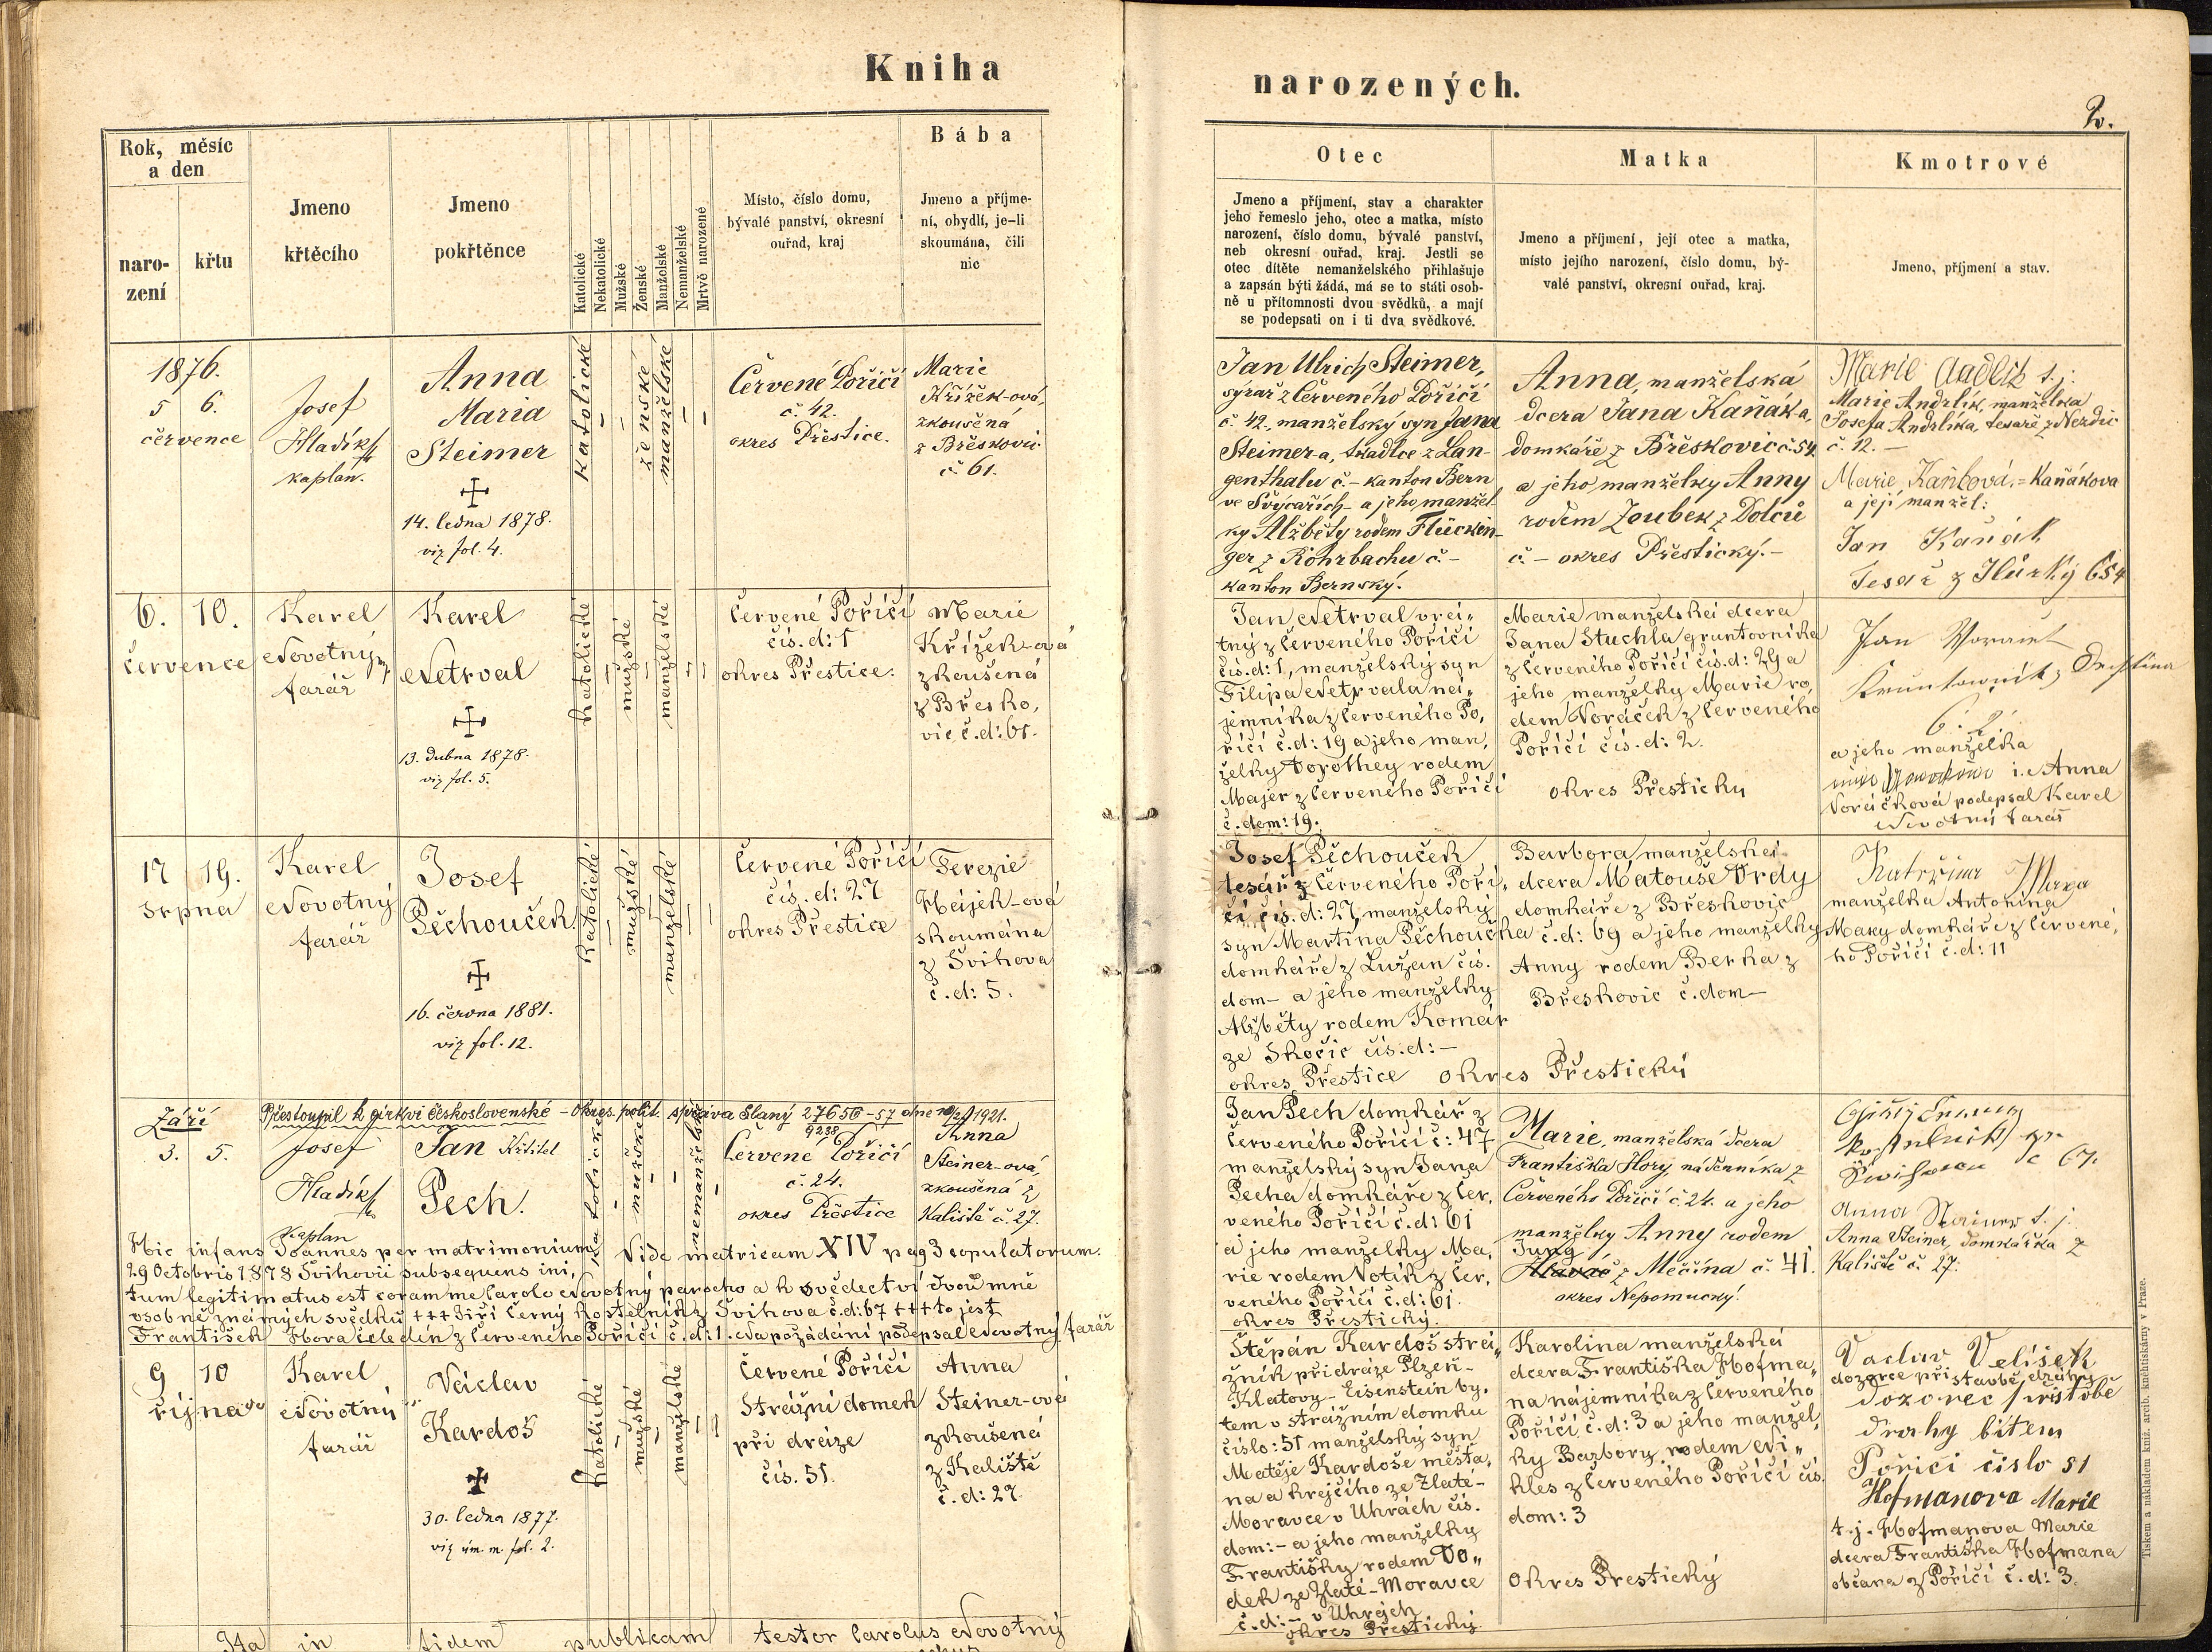 Kniha
narozených.
2.
Rok, měsíc
a den
naro-
zení
křtu
Jmeno
křtěcího
Jmeno
pokřtěnce
Katolické
Nekatolické
Mužské
Ženské
Manželské
Nemanželské
Mrtvě narozené
Místo, číslo domu,
bývalé panství, okresní
ouřad, kraj
Bába
Jmeno a příjme-
ní, obydlí, je-li
skoumána, čili
nic
Otec
Jmeno a příjmení, stav a charakter
jeho řemeslo jeho, otec a matka, místo
narození, číslo domu, bývalé panství,
neb okresní ouřad, kraj. Jestli se
otec dítěte nemanželského přihlašuje
a zapsán býti žádá, má se to státi osob-
ně u přítomnosti dvou svědků, a mají
se podepsati on i ti dva svědkové.
Matka
Jmeno a příjmení, její otec a matka,
místo jejího narození, číslo domu, bý-
valé panství, okresní ouřad, kraj.
Kmotrové
Jmeno, příjmení a stav.
1876.
5 6.
července
Josef
Hladík
kaplan.
Anna
Maria
Steimer
14. ledna 1878.
viz fol. 4.
katolické
ženské
manželské
Červené Poříčí
č. 42.
okres Přestice.
Marie
Křížek-ová,
zkoušená
z Břeskovic
č. 61.
Jan Ulrich Steimer,
sýrař z Červeného Poříčí
č. 42., manželský syn Jana
Steimer-a, tkadlce z Lan-
genthalu č. – kanton Bern
ve Švýcařích – a jeho manžel-
ky Alžběty rodem Flücken-
ger z Rohrbachu č. –
kanton Bernský.
Anna, manželská
dcera Jana Kaňáka,
domkáře z Břeskovic č. 54.
a jeho manželky Anny
rodem Zoubek z Dolců
č. – okres Přestický. –
Marie Andrlik t. j.
Marie Andrlík, manželka
Josefa Andrlíka, tesaře z Nezdic
č. 12. –
Marie Kaňková = Kaňákova
a její manžel:
Jan Kaňák
Tesař z Hůrky č 54
6. 10.
července
Karel
Novotný
farář
Karel
Netrval
13. dubna 1878.
viz fol. 5.
katolické
mužské
manželské
Červené Poříčí
čís. d: 1
okres Přestice.
Marie
Křížek-ová
zkoušená
z Břesko,
vic č. d: 61.
Jan Netrval vrá,,
tný z Červeného Poříčí
čís. d: 1, manželský syn
Filipa Netrvala ná,,
jemníka z Červeného Po,
říčí č. d: 19 a jeho man,
želky Dorothey rodem
Majer z Červeného Poříčí
č. dom: 19.
Marie manželská dcera
Jana Stuchla gruntovníka
z Červeného Poříčí čís. d: 29 a
jeho manželky Marie ro,
dem Voráček z Červeného
Poříčí čís. d: 2.
okres Přestický
Jan
č. 2
a jeho manželka
i. Anna
Voráčková podepsal Karel
Novotný farář
17 19.
srpna
Karel
Novotný
farář
Josef
Pěchouček
16. června 1881.
viz fol. 12.
katolické
mužské
manželské
Červené Poříčí
čís. d: 27
okres Přestice
Terezie
Hájek-ová
skoumána
z Švihova
č. d: 5.
Josef Pěchouček
tesař z Červeného Poří,
čí čís. d: 27, manželský
syn Martina Pěchoučka
domkáře z Lužan čís.
dom – a jeho manželky
Alžběty rodem Komár
ze Skočic čís. d: –
okres Přestice
Barbora manželská
dcera Matouše Vrdy
domkáře z Břeskovic
č. d: 69 a jeho manželky
Anny rodem Berka z
Břeskovic č. dom –
okres Přestický
Katržina Maka
manželka Antonína
Maky domkáře z Červené,
ho Poříčí č. d: 11
Přestoupil k církvi československé – Okres. polit. správa Slaný 27656–57 dne 1921.
9238
Září
3. 5.
Josef
Hladík
kaplan
Jan Křtitel
Pech.
katolické
mužské
nemanželské
Červené Poříčí
č. 24.
okres Přestice
Anna
Steiner-ová,
zkoušená z
Kaliště č. 27.
Jan Pech domkář z
Červeného Poříčí č: 47
manželský syn Jana
Pecha domkáře z Čer,
veného Poříčí č. d: 61
a jeho manželky Ma,
rie rodem Votík z Čer,
veného Poříčí č. d: 61.
okres Přestický.
Marie, manželská dcera
Františka Hory, nádenníka z
Červeného Poříčí č. 24. a jeho
manželky Anny rodem
Jung
Hlaváč z Měčína č. 41.
okres Nepomucký.
č 67.
Anna Steiner t. j.
Anna Steiner, domkářka z
Kaliště č. 27.
Hic infans Joannes per matrimonium Vide matricam XIV pag 3 copulatorum.
29 Octobris 1878 Švihovii subsequens ini,
tum legitimatus est coram me Carolo Novotný parocho a k svědectví dvou mně
osobně známých svědků +++ Jiří Černý kostelník z Švihova č. d: 67 +++ to jest
František Hora čeledín z Červeného Poříčí č. d: 1. Na požádání podepsal Novotný farář
9 10
října
Karel
Novotný
farář
Václav
Kardoš
30. ledna 1877.
viz úm. m. fol. 2.
katolické
mužské
manželské
Červené Poříčí
Strážní domek
při dráze
čís. 51.
Anna
Steiner-ová
zkoušená
z Kaliště
č. d: 27
Štěpán Kardoš strá,,
žník při dráze Plzeň–
Klatovy – Eisenstein by,
tem v strážním domku
číslo: 51 manželský syn
Matěje Kardoše měšťa,
na a krejčího ze Zlaté–
Moravce v Uhrách čís.
dom: – a jeho manželky
Františky rodem Do,,
dek ze Zlaté-Moravce
č. d: – v Uhrách
okres Přestický.
Karolina manželská
dcera Františka Hofma,,
na nájemníka z Červeného
Poříčí č. d: 3 a jeho manžel,
ky Barbory rodem Ni,,
kles z Červeného Poříčí čís.
dom: 3
okres Přestický
Vaclav Velíšek
dozorce při stavbě dráhy
Dozorec při stobě
drahy bitem
Pořici čislo 51
Hofmanova Marie
t. j. Hofmanova Marie
dcera Františka Hofmana
občana z Poříčí č. d: 3.
Ita in fidem publicam testor Carolus Novotný
Tiskem a nákladem kníž. arcib. kněhtiskárny v Praze.